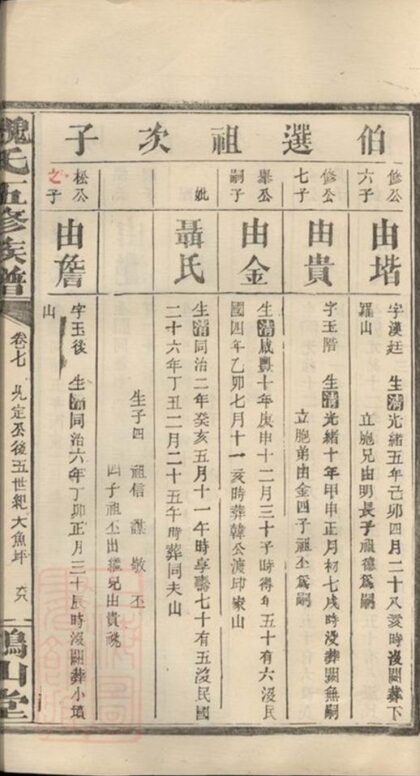 伯選祖次子
修公六子
由堦
字漢廷 生清光緒五年己卯四月二十八亥時沒闕葬下
羅山 立胞兄由明長子祖德爲嗣
修公七子
由貴
字玉階 生清光緒十年甲申正月初七戌時沒葬闕無嗣
立胞弟由金四子祖丕爲嗣
舉公嗣子
由金
生清咸豐十年庚申十二月三十子時得年五十有六沒民
國四年乙卯七月十一亥時葬韓公渡邱家山
妣
聶氏
生清同治二年癸亥五月十一午時享壽七十有五沒民國
二十六年丁丑二月二十五午時葬同夫山
生子四 祖信 謀 敬 丕
四子祖丕出繼兄由貴祧
松公之子
由詹
字玉後 生清同治六年丁卯正月三十辰時沒闕葬小塡
山
魏氏五修族譜
卷七 允定公後五世紀大魚坪 六八
鶴山堂